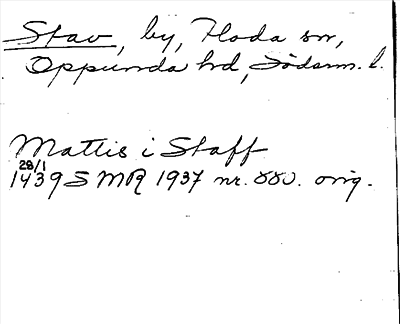 Stav, by, Floda sn,
Oppunda hd, Söderm. l.
Mattis i Staff
28/1
1439 SMR 1937 nr. 880. orig.